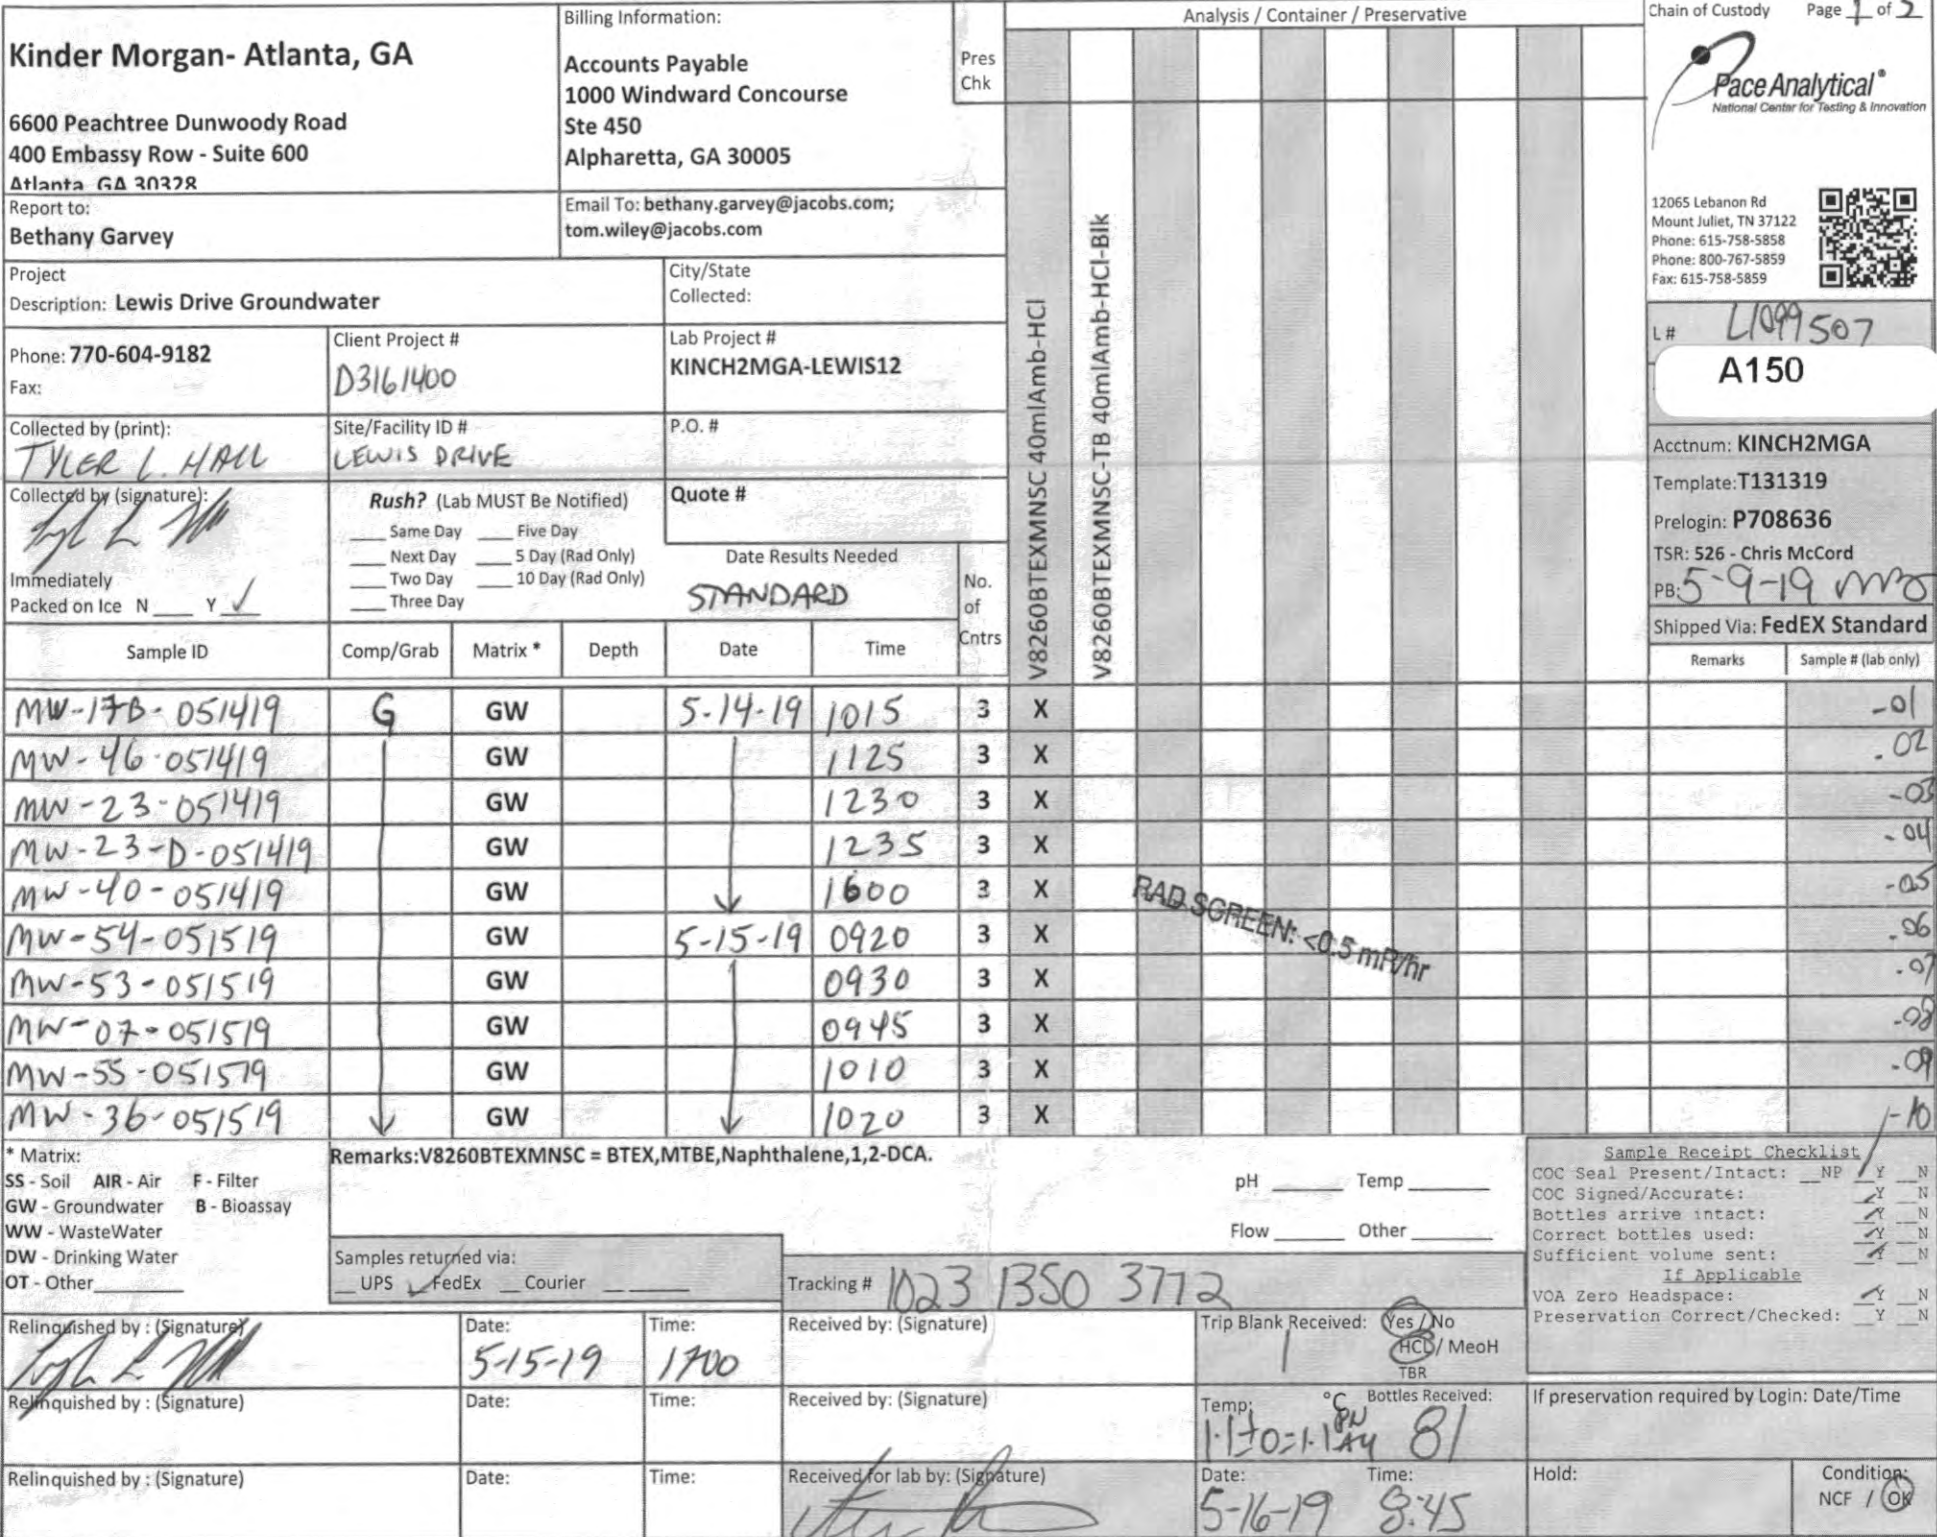 Kinder Morgan- Atlanta, GA
6600 Peachtree Dunwoody Road
400 Embassy Row - Suite 600
Atlanta GA 30328
Billing Information:
Accounts Payable
1000 Windward Concourse
Ste 450
Alpharetta, GA 30005
Pres
Chk
Analysis / Container / Preservative
Chain of Custody Page 1 of 2
Pace Analytical®
National Center for Testing & Innovation
12065 Lebanon Rd
Mount Juliet, TN 37122
Phone: 615-758-5858
Phone: 800-767-5859
Fax: 615-758-5859
Report to:
Bethany Garvey
Email To: bethany.garvey@jacobs.com;
tom.wiley@jacobs.com
Project
Description: Lewis Drive Groundwater
City/State
Collected:
Phone: 770-604-9182
Fax:
Client Project #
D3161400
Lab Project #
KINCH2MGA-LEWIS12
Collected by (print):
TYLER L. HALL
Site/Facility ID #
LEWIS DRIVE
P.O. #
Collected by (signature):
Rush? (Lab MUST Be Notified)
Same Day Five Day
Next Day 5 Day (Rad Only)
Two Day 10 Day (Rad Only)
Three Day
Quote #
Date Results Needed
STANDARD
Immediately
Packed on Ice N Y ✓
No.
of
Cntrs
V8260BTEXMNSC 40mlAmb-HCl
V8260BTEXMNSC-TB 40mlAmb-HCl-Blk
L# L1099507
A150
Acctnum: KINCH2MGA
Template:T131319
Prelogin: P708636
TSR: 526 - Chris McCord
PB: 5-9-19
Shipped Via: FedEX Standard
Sample ID Comp/Grab Matrix * Depth Date Time Remarks Sample # (lab only)
MW-17B-051419 G GW 5-14-19 1015 3 X -01
MW-46-051419 GW 1125 3 X -02
MW-23-051419 GW 1230 3 X -03
MW-23-D-051419 GW 1235 3 X -04
MW-40-051419 GW 1600 3 X -05
MW-54-051519 GW 5-15-19 0920 3 X -06
MW-53-051519 GW 0930 3 X -07
MW-07-051519 GW 0945 3 X -08
MW-55-051519 GW 1010 3 X -09
MW-36-051519 GW 1020 3 X -10
RAD SCREEN: <0.5 mR/hr
* Matrix:
SS - Soil AIR - Air F - Filter
GW - Groundwater B - Bioassay
WW - WasteWater
DW - Drinking Water
OT - Other
Remarks:V8260BTEXMNSC = BTEX,MTBE,Naphthalene,1,2-DCA.
pH Temp
Flow Other
Samples returned via:
UPS ✓ FedEx Courier
Tracking # 1023 1350 3772
Sample Receipt Checklist
COC Seal Present/Intact: NP Y N
COC Signed/Accurate: Y N
Bottles arrive intact: Y N
Correct bottles used: Y N
Sufficient volume sent: Y N
If Applicable
VOA Zero Headspace: Y N
Preservation Correct/Checked: Y N
Relinquished by : (Signature) Date: 5-15-19 Time: 1700 Received by: (Signature)
Trip Blank Received: Yes / No
1 HCL / MeoH
TBR
Relinquished by : (Signature) Date: Time: Received by: (Signature)
Temp: °C Bottles Received:
1.1±0=1.1 81
If preservation required by Login: Date/Time
Relinquished by : (Signature) Date: Time: Received for lab by: (Signature)
Date: 5-16-19 Time: 8:45
Hold:
Condition:
NCF / OK